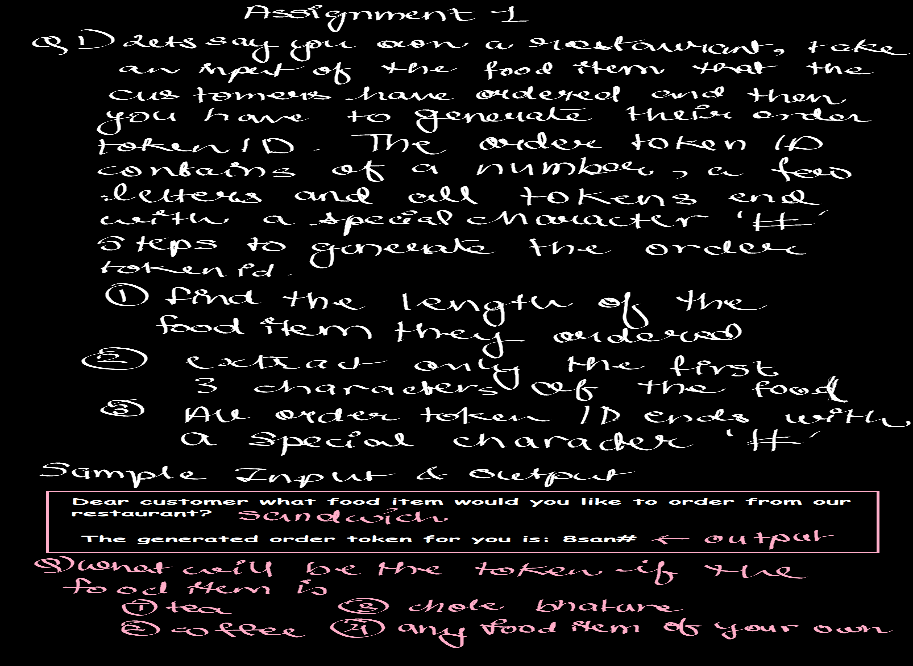 Assignment - 1
Q1) Lets say you own a restaurant, take
an input of the food item that the
customers have ordered and then
you have to generate their order
token ID. The order token ID
contains of a number, a few
letters and all tokens end
with a special character '#'
Steps to generate the order
token id.
① find the length of the
food item they ordered
② extract only the first
3 characters of the food
③ All order token ID ends with
a special character '#'
Sample Input & Output
Dear customer what food item would you like to order from our
restaurant? sandwich
The generated order token for you is: 8san# ← output
Q) what will be the token if the
food item is
① tea ③ chole bhature
② coffee ④ any food item of your own